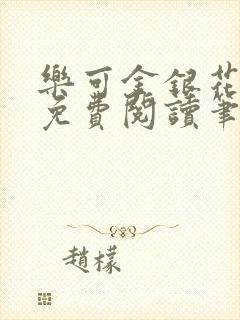 樂可金銀花
免費閱讀筆
趙檬